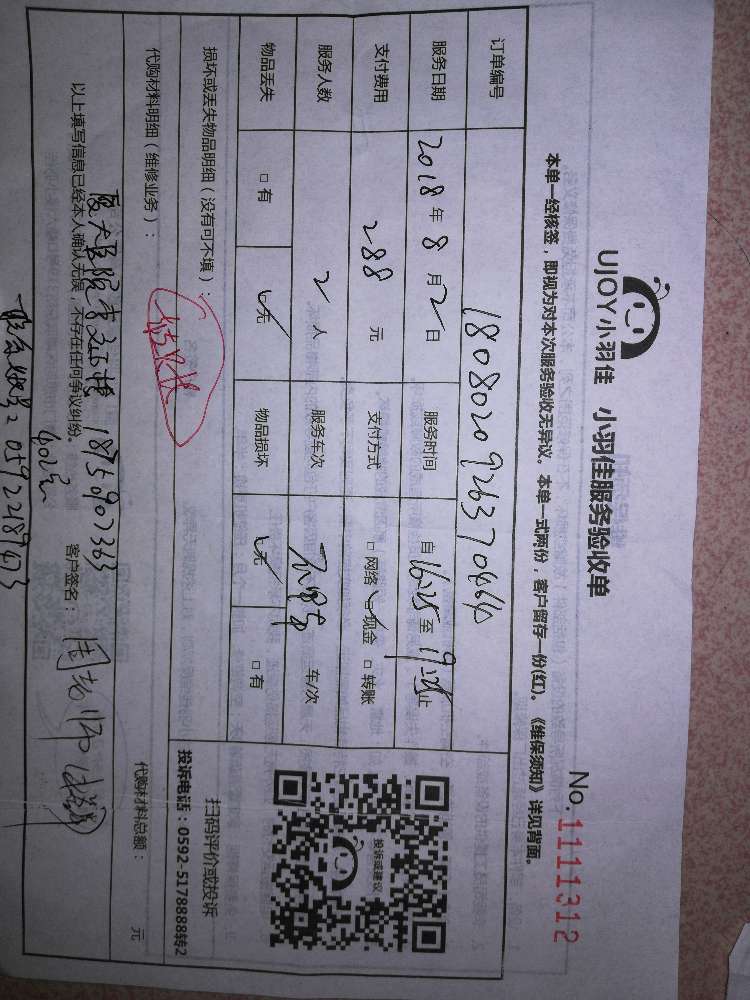 UJOY小羽佳 小羽佳服务验收单
No.1111312
本单一经核签，即视为对本次服务验收无异议。本单一式两份，客户留存一份(红)。《维保须知》详见背面。
订单编号
服务日期 2018年8月2日 服务时间 自16:25至19:25止
支付费用 288元 支付方式 □网络 ☑现金 □转账
服务人数 2人 服务车次 车/次
物品丢失 □有 ☑无 物品损坏 ☑无 □有
投诉或建议
扫码评价或投诉
投诉电话：0592-5178888转2
损坏或丢失物品明细（没有可不填）：
代购材料明细（维修业务）：
代购材料总额： 元
1875907363
以上填写信息已经本人确认无误，不存在任何争议纠纷。 客户签名：
602室
05922187673